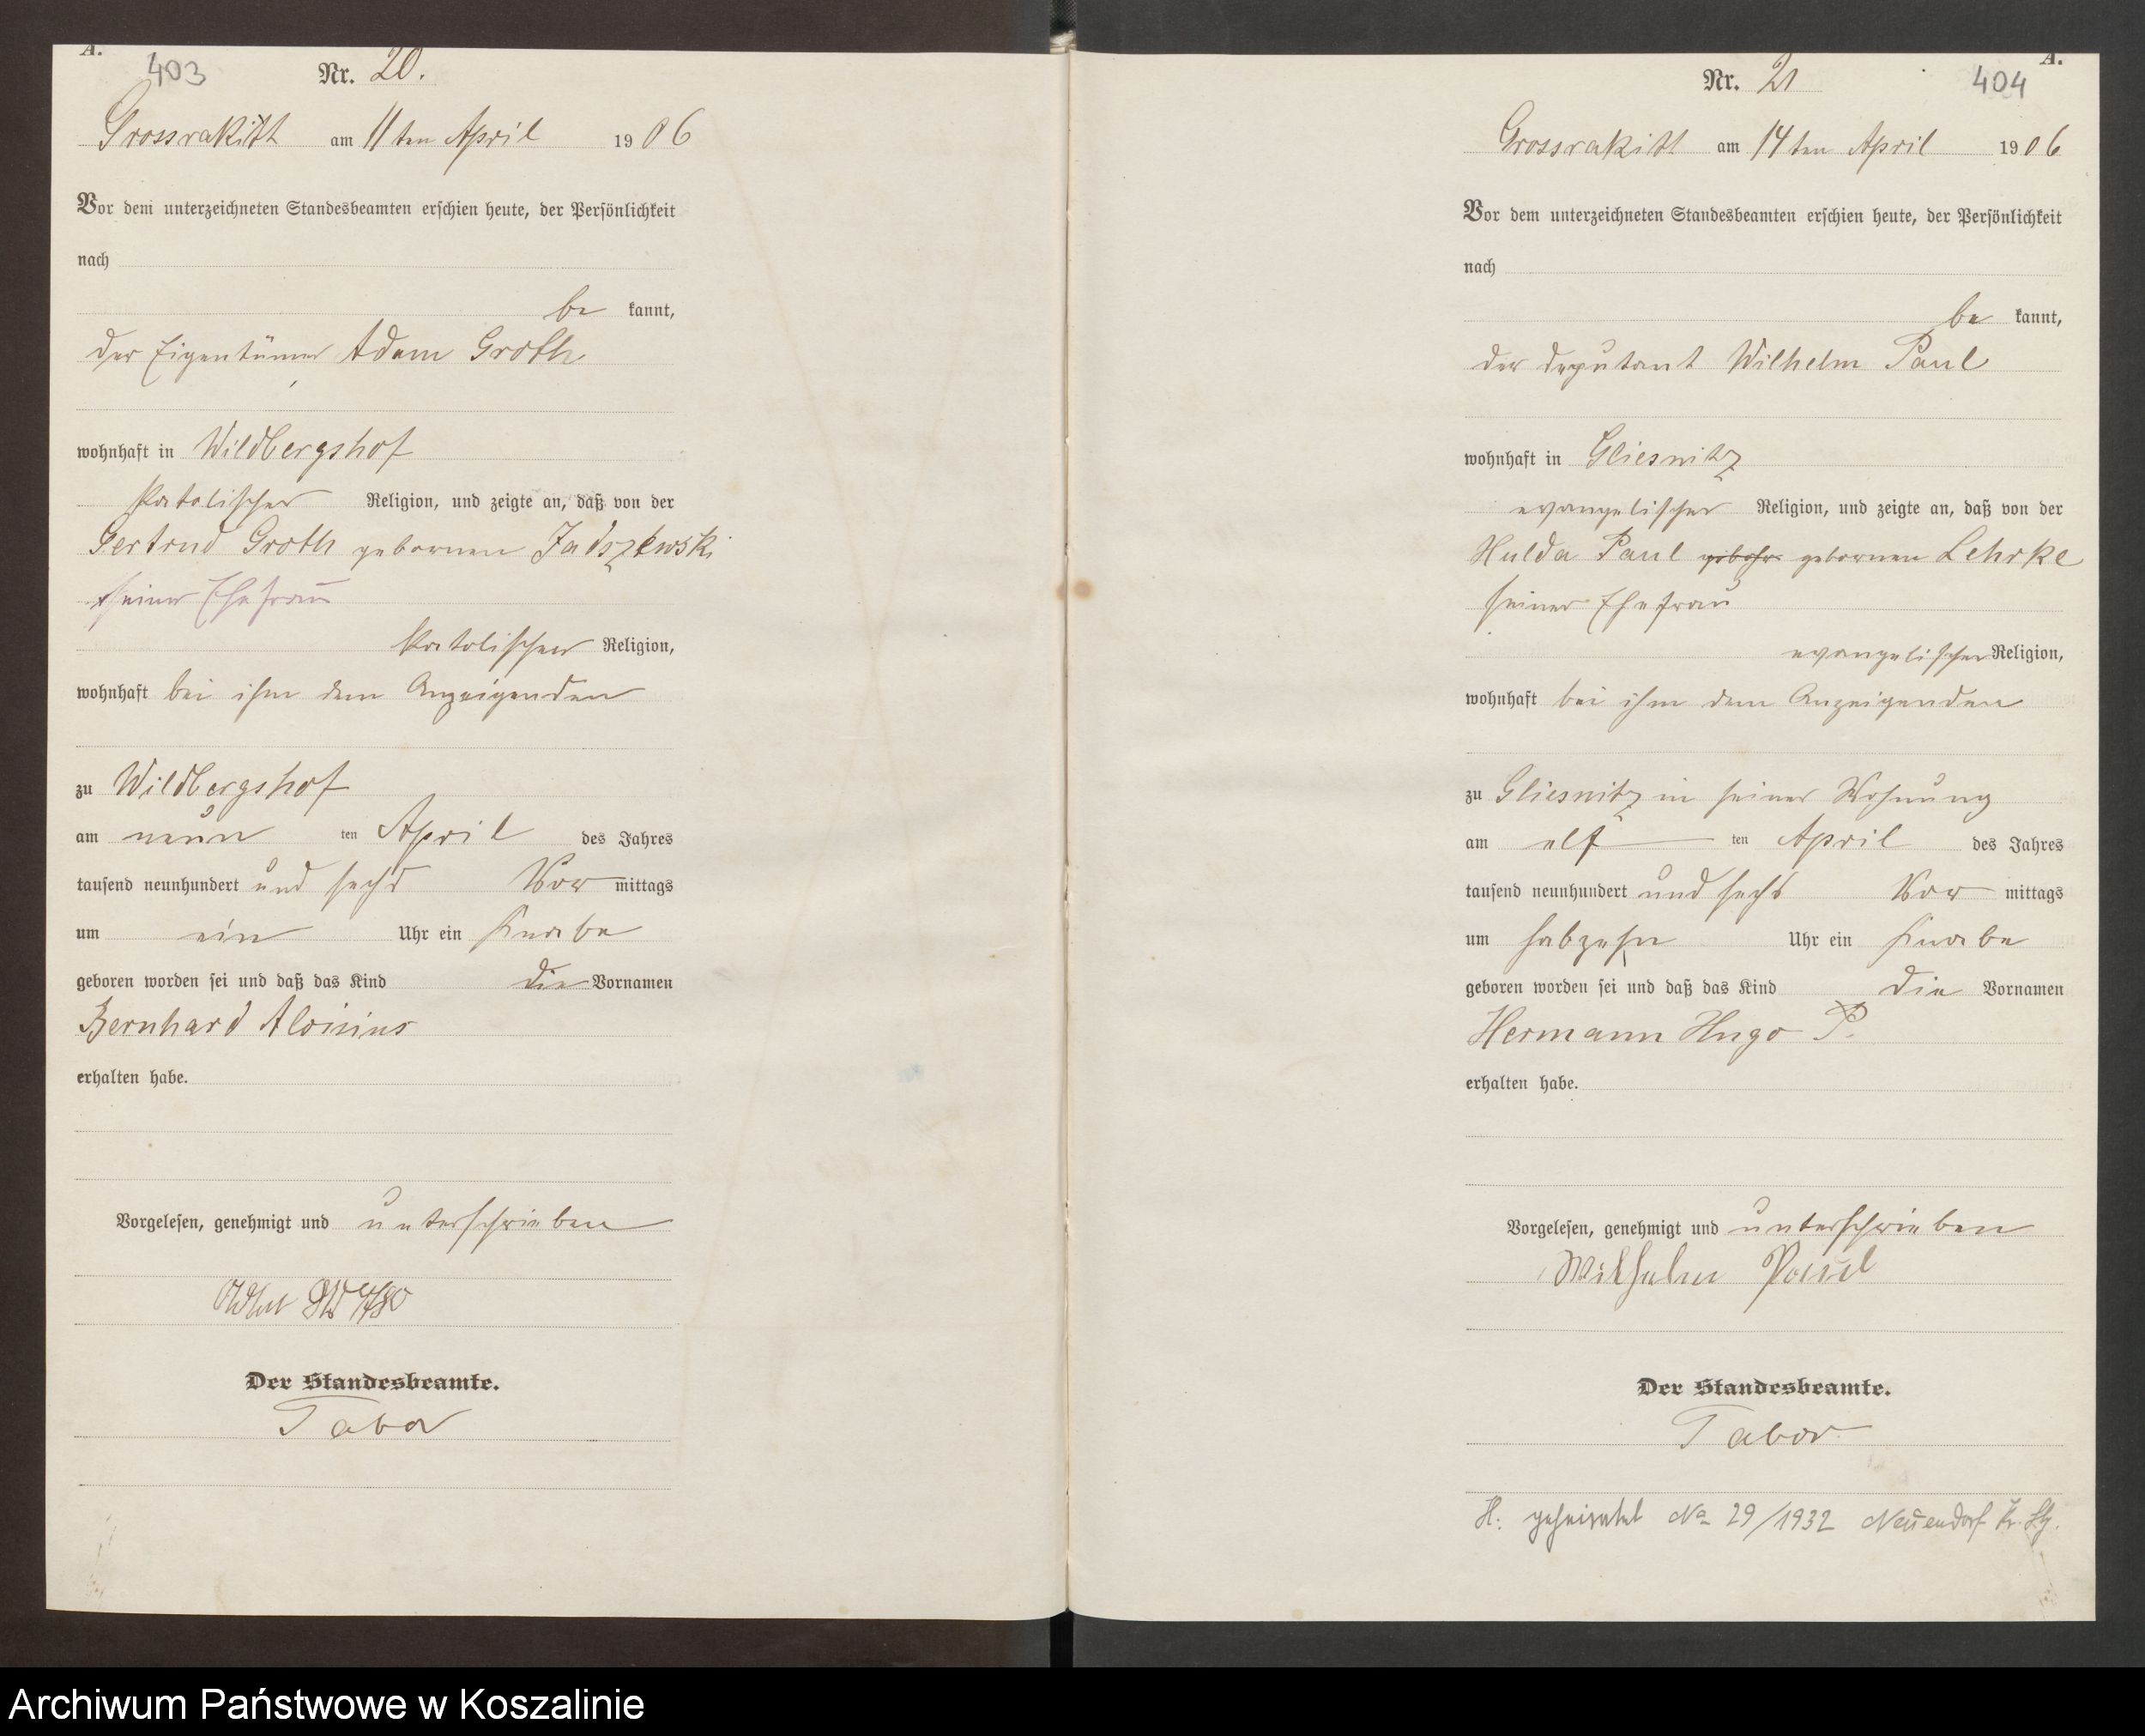 A.
403
Nr. 20.
Grossrakitt am 11 ten April 1906
Vor dem unterzeichneten Standesbeamten erschien heute, der Persönlichkeit
nach
be kannt,
der Eigentümer Adam Groth
wohnhaft in Wildbergshof
katolischer Religion, und zeigte an, daß von der
Gertrud Groth gebornen Jadszewski
seiner Ehefrau
katolischer Religion,
wohnhaft bei ihm dem Anzeigenden
zu Wildbergshof
am neun ten April des Jahres
tausend neunhundert und sechs Vor mittags
um ein Uhr ein Knabe
geboren worden sei und daß das Kind die Vornamen
Bernhard Aloisius
erhalten habe.
Vorgelesen, genehmigt und unterschrieben
Der Standesbeamte.
Tabor
A.
Nr. 21
404
Grossrakitt am 14 ten April 1906
Vor dem unterzeichneten Standesbeamten erschien heute, der Persönlichkeit
nach
be kannt,
der Deputant Wilhelm Paul
wohnhaft in Gliesnitz
evangelischer Religion, und zeigte an, daß von der
Hulda Paul gebornen Lehrke
seiner Ehefrau
evangelischer Religion,
wohnhaft bei ihm dem Anzeigenden
zu Gliesnitz in seiner Wohnung
am elf ten April des Jahres
tausend neunhundert und sechs Vor mittags
um Uhr ein Knabe
geboren worden sei und daß das Kind die Vornamen
Hermann Hugo P.
erhalten habe.
Vorgelesen, genehmigt und unterschrieben
Wilhelm Paul
Der Standesbeamte.
Tabor
H: geheiratet No 29/1932 Neuendorf Kr.
Archiwum Państwowe w Koszalinie